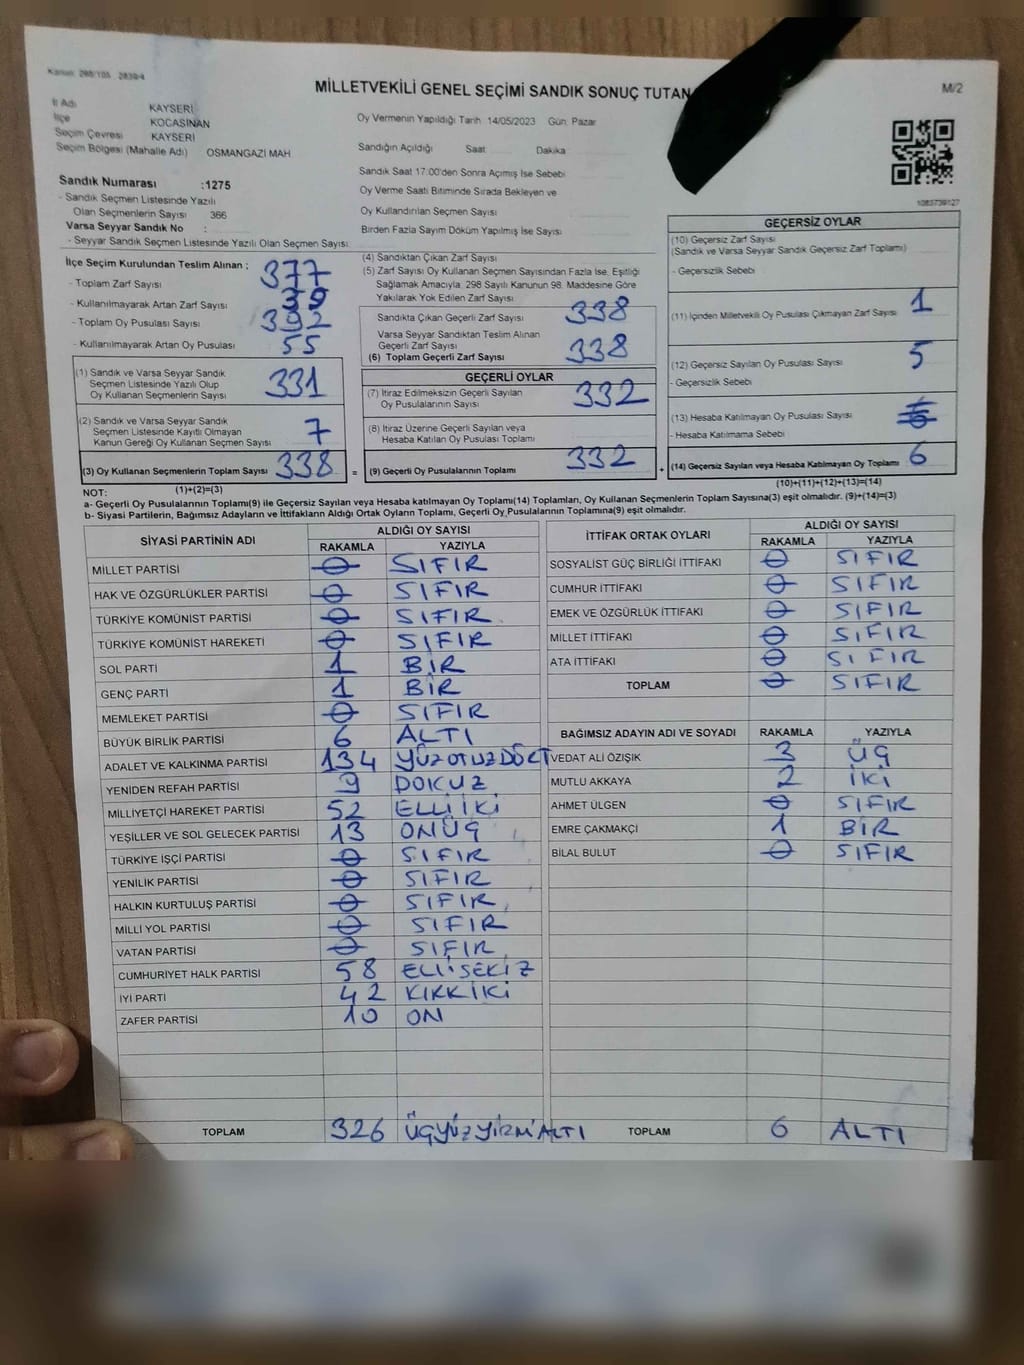 Kanun: 298/105 2839/4
MİLLETVEKİLİ GENEL SEÇİMİ SANDIK SONUÇ TUTAN
M/2
İl Adı KAYSERİ
İlçe KOCASİNAN
Seçim Çevresi KAYSERİ
Seçim Bölgesi (Mahalle Adı) OSMANGAZİ MAH
Oy Vermenin Yapıldığı Tarih 14/05/2023 Gün: Pazar
Sandığın Açıldığı Saat Dakika
Sandık Saat 17.00'den Sonra Açımış İse Sebebi
Oy Verme Saati Bitiminde Sırada Bekleyen ve
Oy Kullandırılan Seçmen Sayısı
Birden Fazla Sayım Döküm Yapılmış İse Sayısı
1083739127
Sandık Numarası :1275
- Sandık Seçmen Listesinde Yazılı
Olan Seçmenlerin Sayısı 366
Varsa Seyyar Sandık No :
- Seyyar Sandık Seçmen Listesinde Yazılı Olan Seçmen Sayısı
İlçe Seçim Kurulundan Teslim Alınan :
- Toplam Zarf Sayısı 377
- Kullanılmayarak Artan Zarf Sayısı 39
- Toplam Oy Pusulası Sayısı 392
- Kullanılmayarak Artan Oy Pusulası 55
(1) Sandık ve Varsa Seyyar Sandık
Seçmen Listesinde Yazılı Olup
Oy Kullanan Seçmenlerin Sayısı 331
(2) Sandık ve Varsa Seyyar Sandık
Seçmen Listesinde Kayıtlı Olmayan
Kanun Gereği Oy Kullanan Seçmen Sayısı 7
(3) Oy Kullanan Seçmenlerin Toplam Sayısı 338 =
(1)+(2)=(3)
(4) Sandıktan Çıkan Zarf Sayısı
(5) Zarf Sayısı Oy Kullanan Seçmen Sayısından Fazla İse, Eşitliği
Sağlamak Amacıyla, 298 Sayılı Kanunun 98. Maddesine Göre
Yakılarak Yok Edilen Zarf Sayısı
Sandıkta Çıkan Geçerli Zarf Sayısı 338
Varsa Seyyar Sandıktan Teslim Alınan
Geçerli Zarf Sayısı
(6) Toplam Geçerli Zarf Sayısı 338
GEÇERLİ OYLAR
(7) İtiraz Edilmeksizin Geçerli Sayılan
Oy Pusulalarının Sayısı 332
(8) İtiraz Üzerine Geçerli Sayılan veya
Hesaba Katılan Oy Pusulası Toplamı
(9) Geçerli Oy Pusulalarının Toplamı 332 +
GEÇERSİZ OYLAR
(10) Geçersiz Zarf Sayısı
(Sandık ve Varsa Seyyar Sandık Geçersiz Zarf Toplamı)
- Geçersizlik Sebebi
(11) İçinden Milletvekili Oy Pusulası Çıkmayan Zarf Sayısı 1
(12) Geçersiz Sayılan Oy Pusulası Sayısı 5
- Geçersizlik Sebebi
(13) Hesaba Katılmayan Oy Pusulası Sayısı
- Hesaba Katılmama Sebebi
(14) Geçersiz Sayılan veya Hesaba Katılmayan Oy Toplamı 6
(10)+(11)+(12)+(13)=(14)
NOT:
a- Geçerli Oy Pusulalarının Toplamı(9) ile Geçersiz Sayılan veya Hesaba katılmayan Oy Toplamı(14) Toplamları, Oy Kullanan Seçmenlerin Toplam Sayısına(3) eşit olmalıdır. (9)+(14)=(3)
b- Siyasi Partilerin, Bağımsız Adayların ve İttifakların Aldığı Ortak Oyların Toplamı, Geçerli Oy Pusulalarının Toplamına(9) eşit olmalıdır.
SİYASİ PARTİNİN ADI ALDIĞI OY SAYISI
RAKAMLA YAZIYLA
MİLLET PARTİSİ 0 SIFIR
HAK VE ÖZGÜRLÜKLER PARTİSİ 0 SIFIR
TÜRKİYE KOMÜNİST PARTİSİ 0 SIFIR
TÜRKİYE KOMÜNİST HAREKETİ 0 SIFIR
SOL PARTİ 1 BİR
GENÇ PARTİ 1 BİR
MEMLEKET PARTİSİ 0 SIFIR
BÜYÜK BİRLİK PARTİSİ 6 ALTI
ADALET VE KALKINMA PARTİSİ 134 YÜZOTUZDÖRT
YENİDEN REFAH PARTİSİ 9 DOKUZ
MİLLİYETÇİ HAREKET PARTİSİ 52 ELLİİKİ
YEŞİLLER VE SOL GELECEK PARTİSİ 13 ONÜÇ
TÜRKİYE İŞÇİ PARTİSİ 0 SIFIR
YENİLİK PARTİSİ 0 SIFIR
HALKIN KURTULUŞ PARTİSİ 0 SIFIR
MİLLİ YOL PARTİSİ 0 SIFIR
VATAN PARTİSİ 0 SIFIR
CUMHURİYET HALK PARTİSİ 58 ELLİSEKİZ
İYİ PARTİ 42 KIRKİKİ
ZAFER PARTİSİ 10 ON
TOPLAM 326 ÜÇYÜZYİRMİALTI
İTTİFAK ORTAK OYLARI ALDIĞI OY SAYISI
RAKAMLA YAZIYLA
SOSYALİST GÜÇ BİRLİĞİ İTTİFAKI 0 SIFIR
CUMHUR İTTİFAKI 0 SIFIR
EMEK VE ÖZGÜRLÜK İTTİFAKI 0 SIFIR
MİLLET İTTİFAKI 0 SIFIR
ATA İTTİFAKI 0 SIFIR
TOPLAM 0 SIFIR
BAĞIMSIZ ADAYIN ADI VE SOYADI RAKAMLA YAZIYLA
VEDAT ALİ ÖZIŞIK 3 ÜÇ
MUTLU AKKAYA 2 İKİ
AHMET ÜLGEN 0 SIFIR
EMRE ÇAKMAKÇI 1 BİR
BİLAL BULUT 0 SIFIR
TOPLAM 6 ALTI